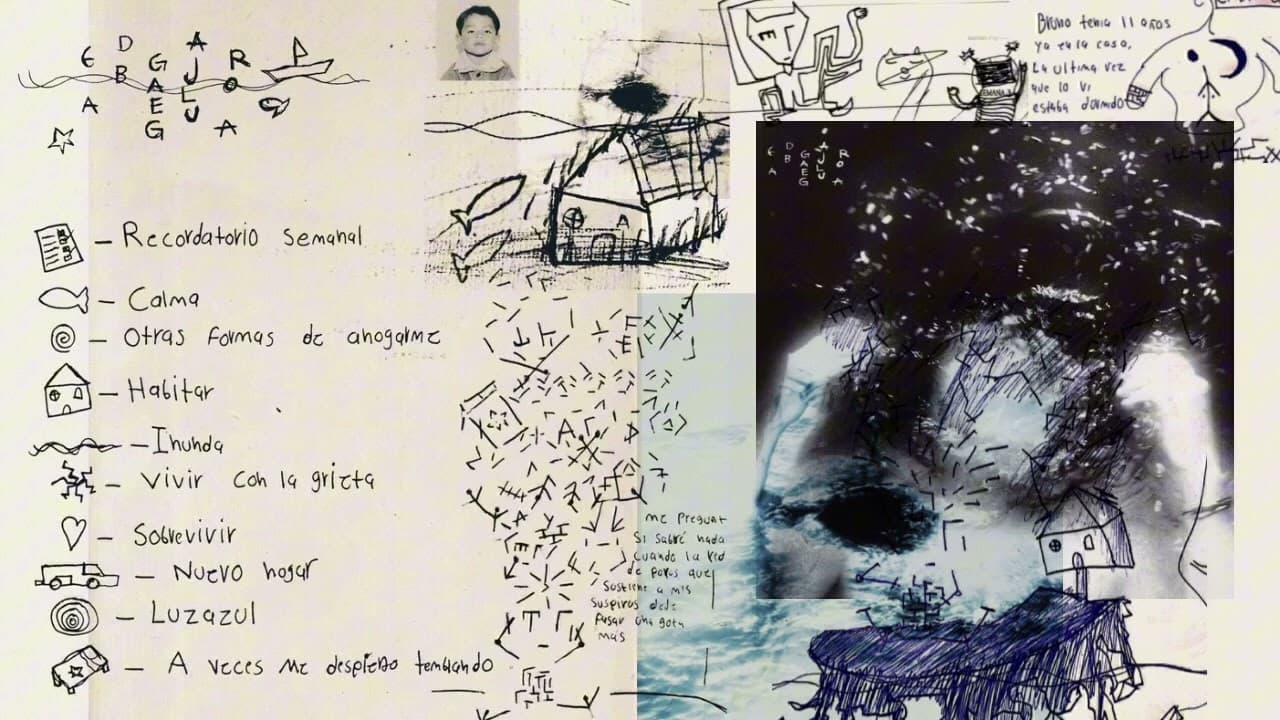 E D G A R
B A J O
E L
A G U A
Recordatorio semanal
Calma
Otras formas de ahogarme
Habitar
Inunda
Vivir con la grieta
Sobrevivir
Nuevo hogar
Luzazul
A veces me despierto temblando
Bruno tenia 11 años
ya en la casa,
La ultima vez
que lo vi
estaba dormido
E D G A R
B A J O
E L
A G U A
me Pregunt
Si sabré nada
cuando la red
de poros que
Sostiene a mis
suspiros deje
pasar una gota
más